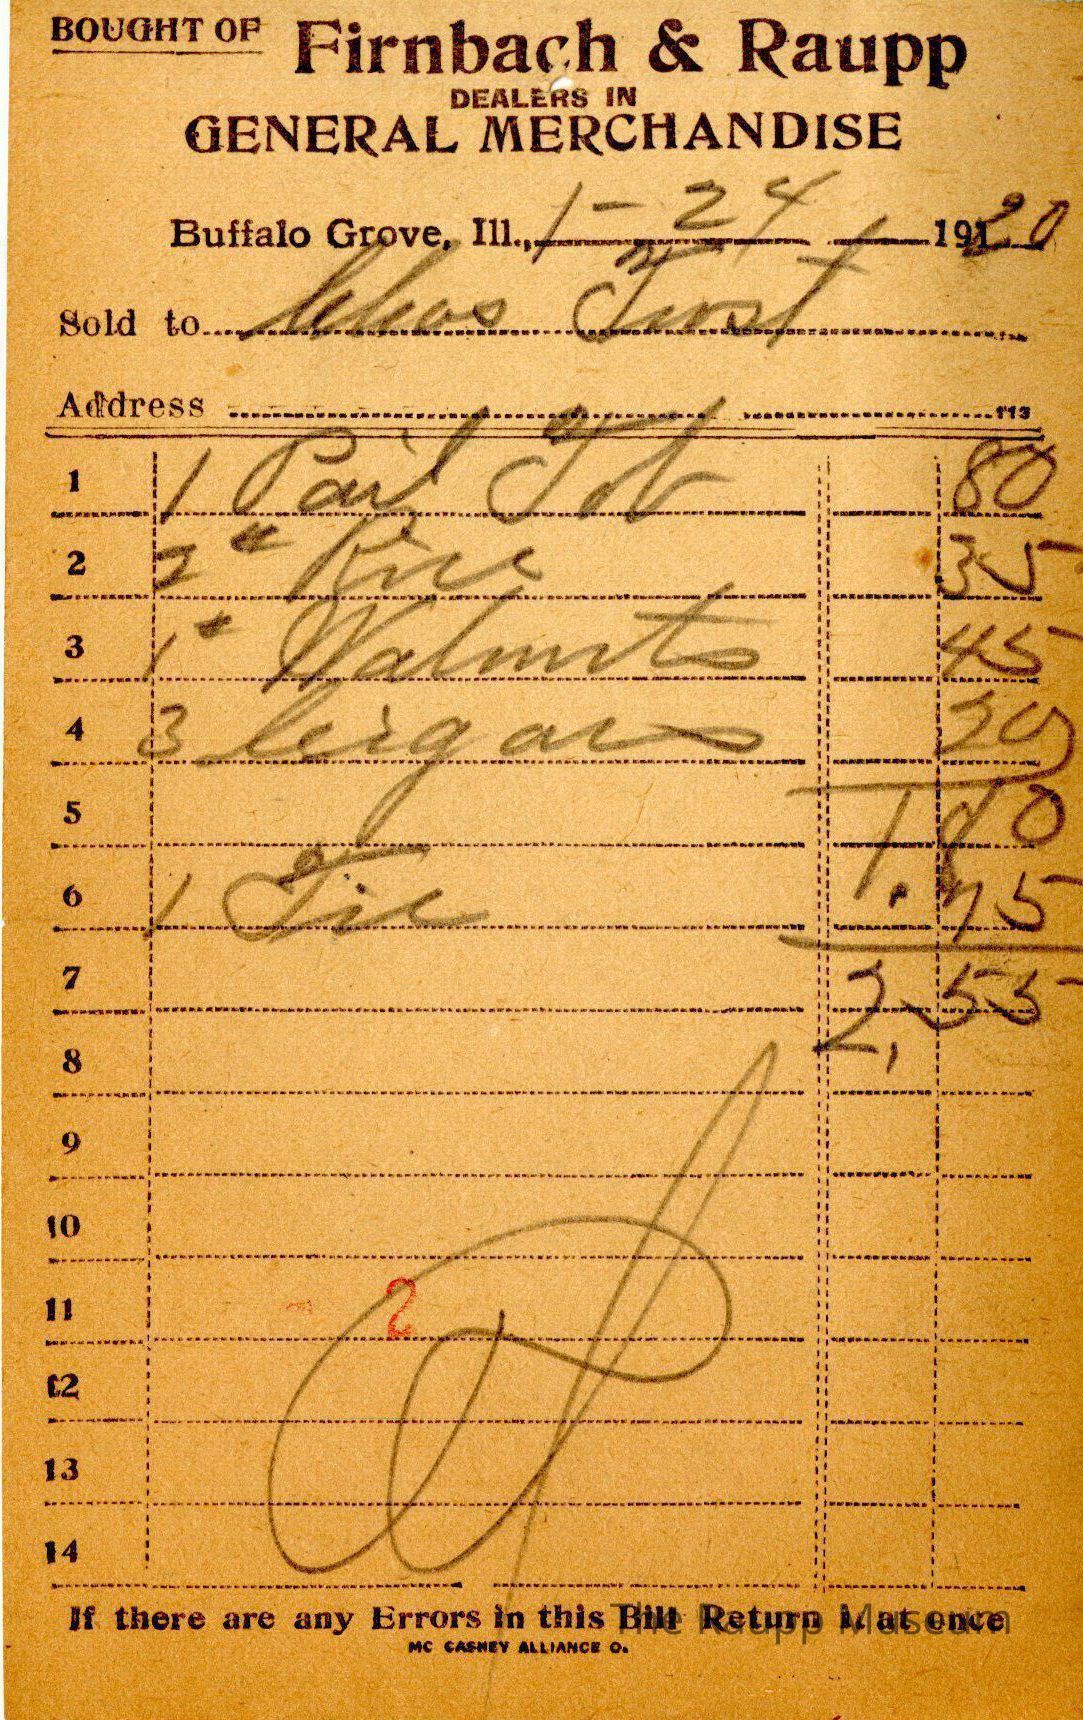 BOUGHT OF Firnbach & Raupp
DEALERS IN
GENERAL MERCHANDISE
Buffalo Grove, Ill., 1-24 1920
Sold to Chas Furst
Address 113
1 1 Pail Tob 80
2 2 # Rice 35
3 1 # Walnuts 45
4 3 Cigars 20
5 1 80
6 1 Tie .75
7 2,55
8
9
10
11 2
12
13
14
If there are any Errors in this Bill Return it at once
MC CASKEY ALLIANCE O.
The Raupp Museum